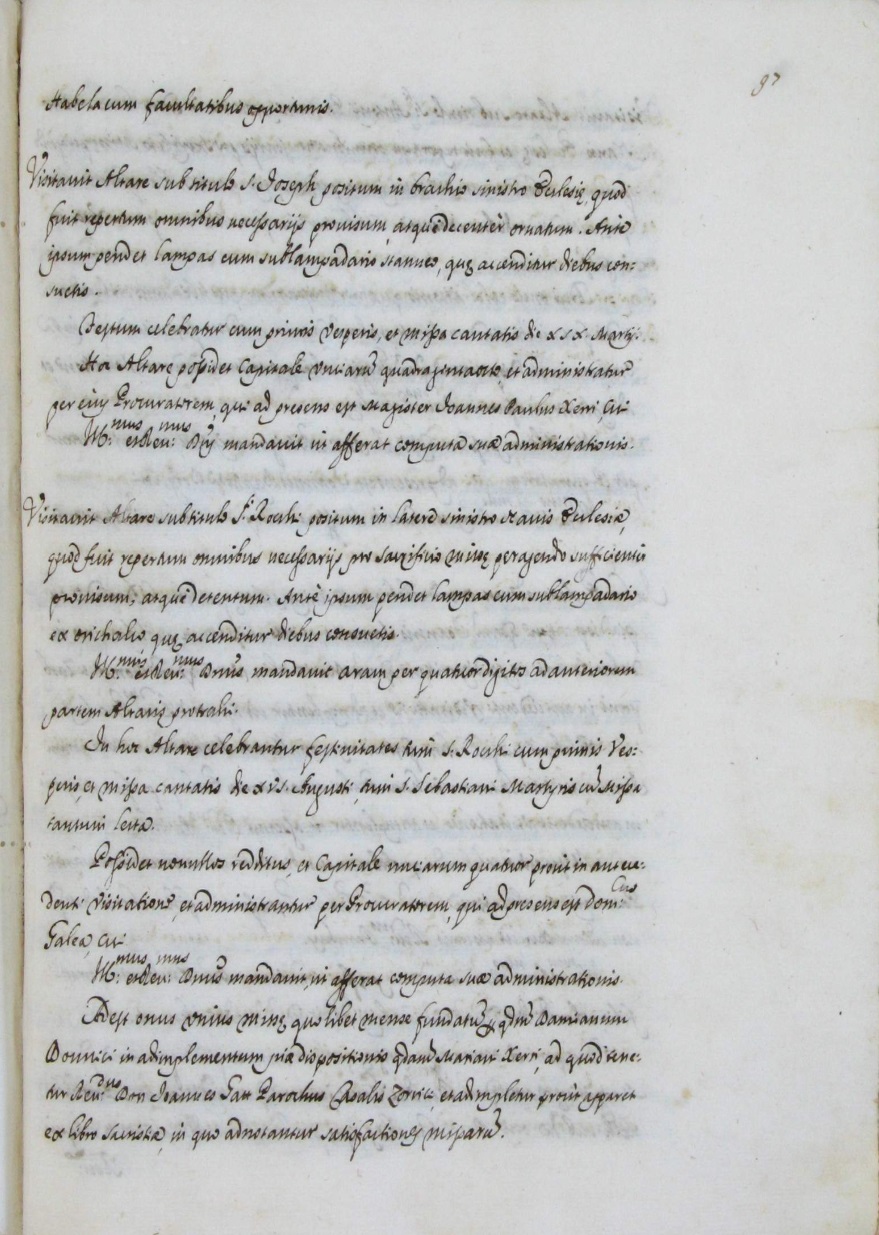 97
Habela cum facultatibus opportunis.
Visitavit Altare sub titulo S. Joseph positum in brachio sinistro Ecclesię, quod
fuit repertum omnibus necessarijs provisum, atque decentèr ornatum. Antè
ipsum pendet lampas cum sublampadario stanneo, quę accenditur diebus con:
suetis.
Festum celebratur cum primis Vesperis, et missa cantatis die XIX. Martij.
Hoc Altare possidet Capitale unciarũ quadraginta octo, et administratur
per eius Procuratorem, qui ad presens est Magister Joannes Paulus Xerri, Cui
Ill:mus et Rev:mus Dñs mandavit ut afferat computa suæ administrationis.
Visitavit Altare sub titulo S.ti Rochi positum in latere sinistro Navis Ecclesiæ,
quod fuit repertum omnibus necessarijs pro sacrificio missę peragendo sufficientèr
provisum; atque detentum. Antè ipsum pendet lampas cum sublampadario
ex orichalco quę accenditur diebus consuetis.
Ill:mus et Rev:mus Dnũs mandavit aram per quatuor digitos ad anteriorem
partem Altaris protrahi.
In hoc Altare celebrantur festivitates tùm S. Rochi cum primis Ves:
peris, et missa cantatis die XVI. Augusti, tùm S. Sebastiani Martyris cũ Missa
tantùm lecta.
Possidet nonnullos redditus, et Capitale unciarum quatuor prout in antece:
denti Visitatione, et administrantur per Procuratorem, qui ad presens est Dom:cus
Galea, Cui
Ill:mus et Rev:mus Dnũs mandavit, ut afferat computa suæ administrationis.
Adest onus unius missę quolibet mense fundatũ p qdm̃ Damianum
Bonnici in adimplementum piæ dispositionis qdam̃ Mariæ Xerri, ad quod tene:
tur Rev:dus Don Joannes Gatt Parochus Casalis Zorrici, et adimpletur prout apparet
ex libro sacristiæ, in quo adnotantur satisfactiones missarũ.